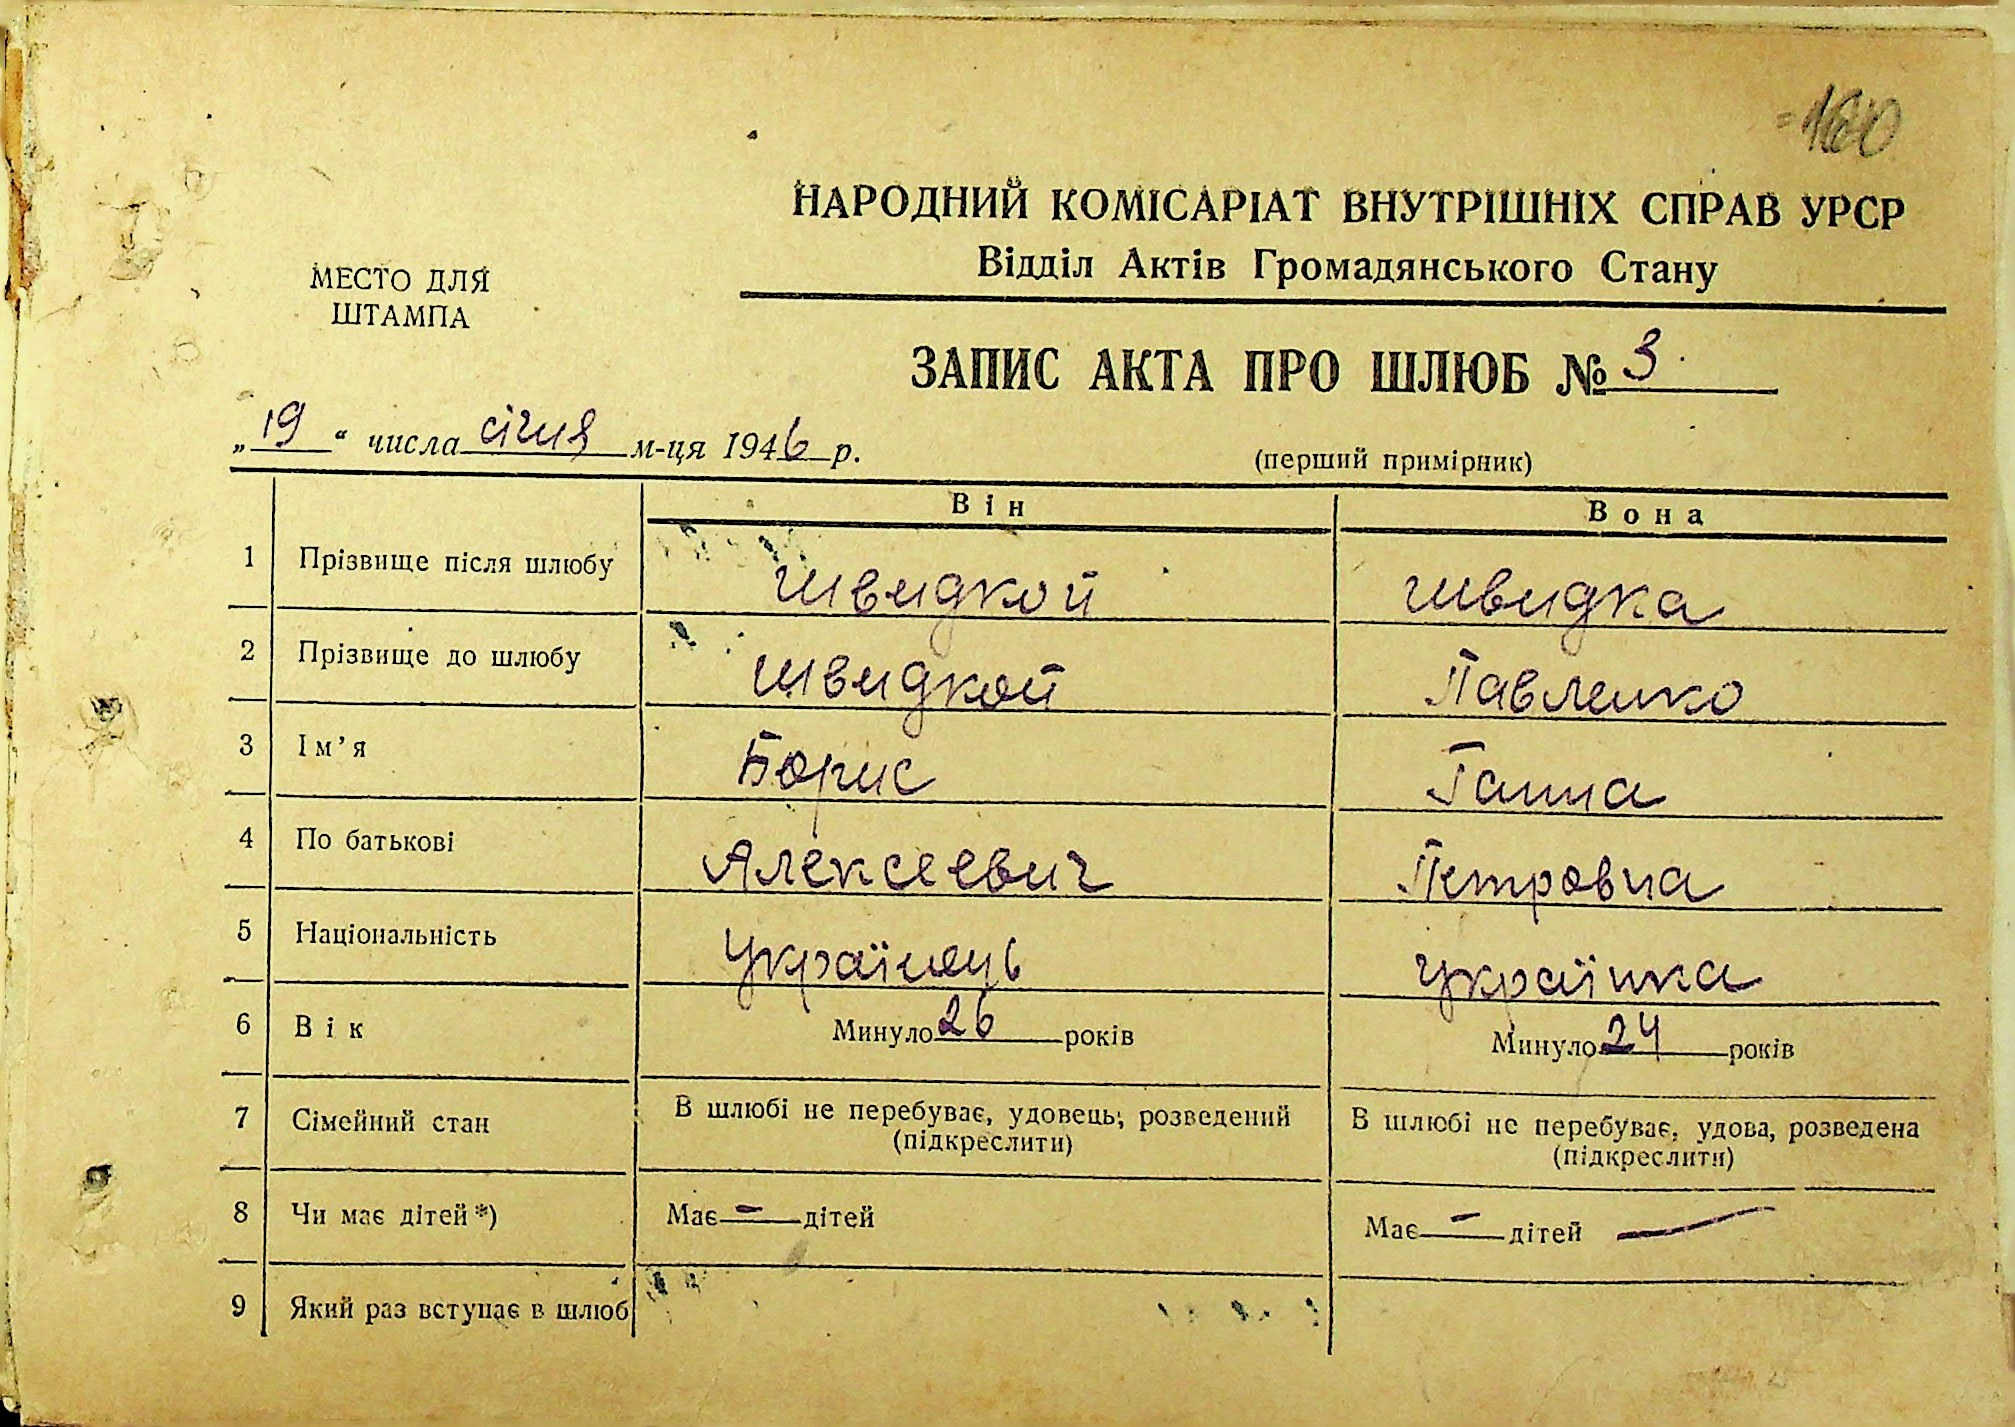 НАРОДНИЙ КОМІСАРІАТ ВНУТРІШНІХ СПРАВ УРСР
Відділ Актів Громадянського Стану
МЕСТО ДЛЯ
ШТАМПА
ЗАПИС АКТА ПРО ШЛЮБ № 3
„19“ числа січня м-ця 1946 р.
(перший примірник)
Він Вона
1 Прізвище після шлюбу Швидкой Швидка
2 Прізвище до шлюбу Швидкой Павленко
3 Ім’я Борис Ганна
4 По батькові Алексеевич Петровна
5 Національність Українець Українка
6 Вік Минуло 26 років Минуло 24 років
7 Сімейний стан В шлюбі не перебуває, удовець, розведений (підкреслити) В шлюбі не перебуває, удова, розведена (підкреслити)
8 Чи має дітей*) Має — дітей Має — дітей —
9 Який раз вступає в шлюб